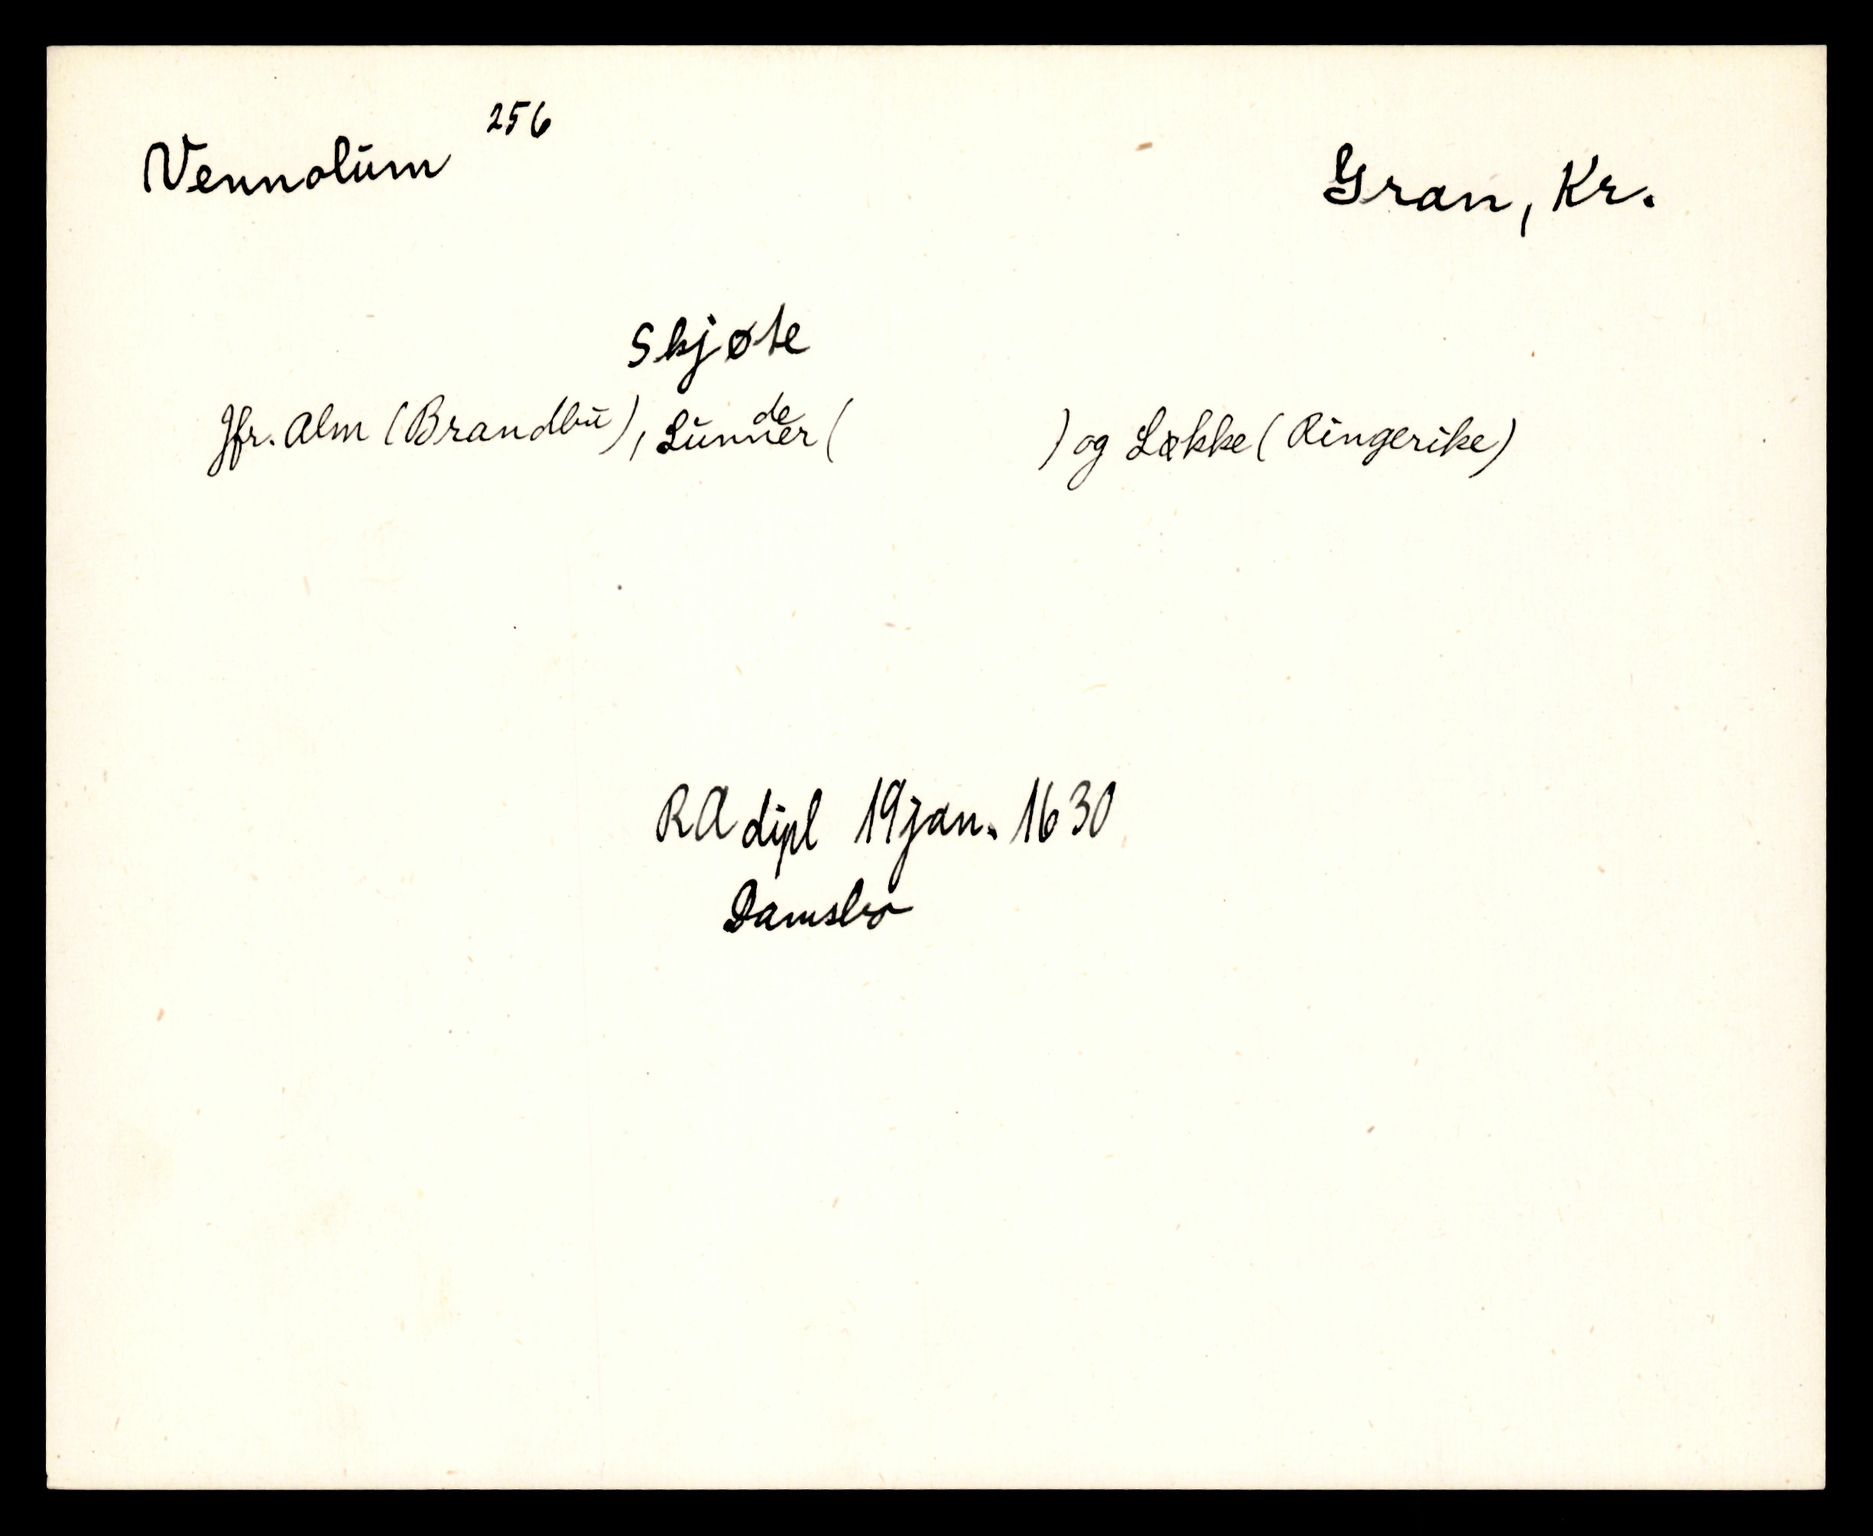 Vennolum 256
Gran, Kr.
Skjøte
Jfr. Alm (Brandbu), Lunder ( ) og Løkke (Ringerike)
de
RA dipl 19 jan. 1630
Damsbo